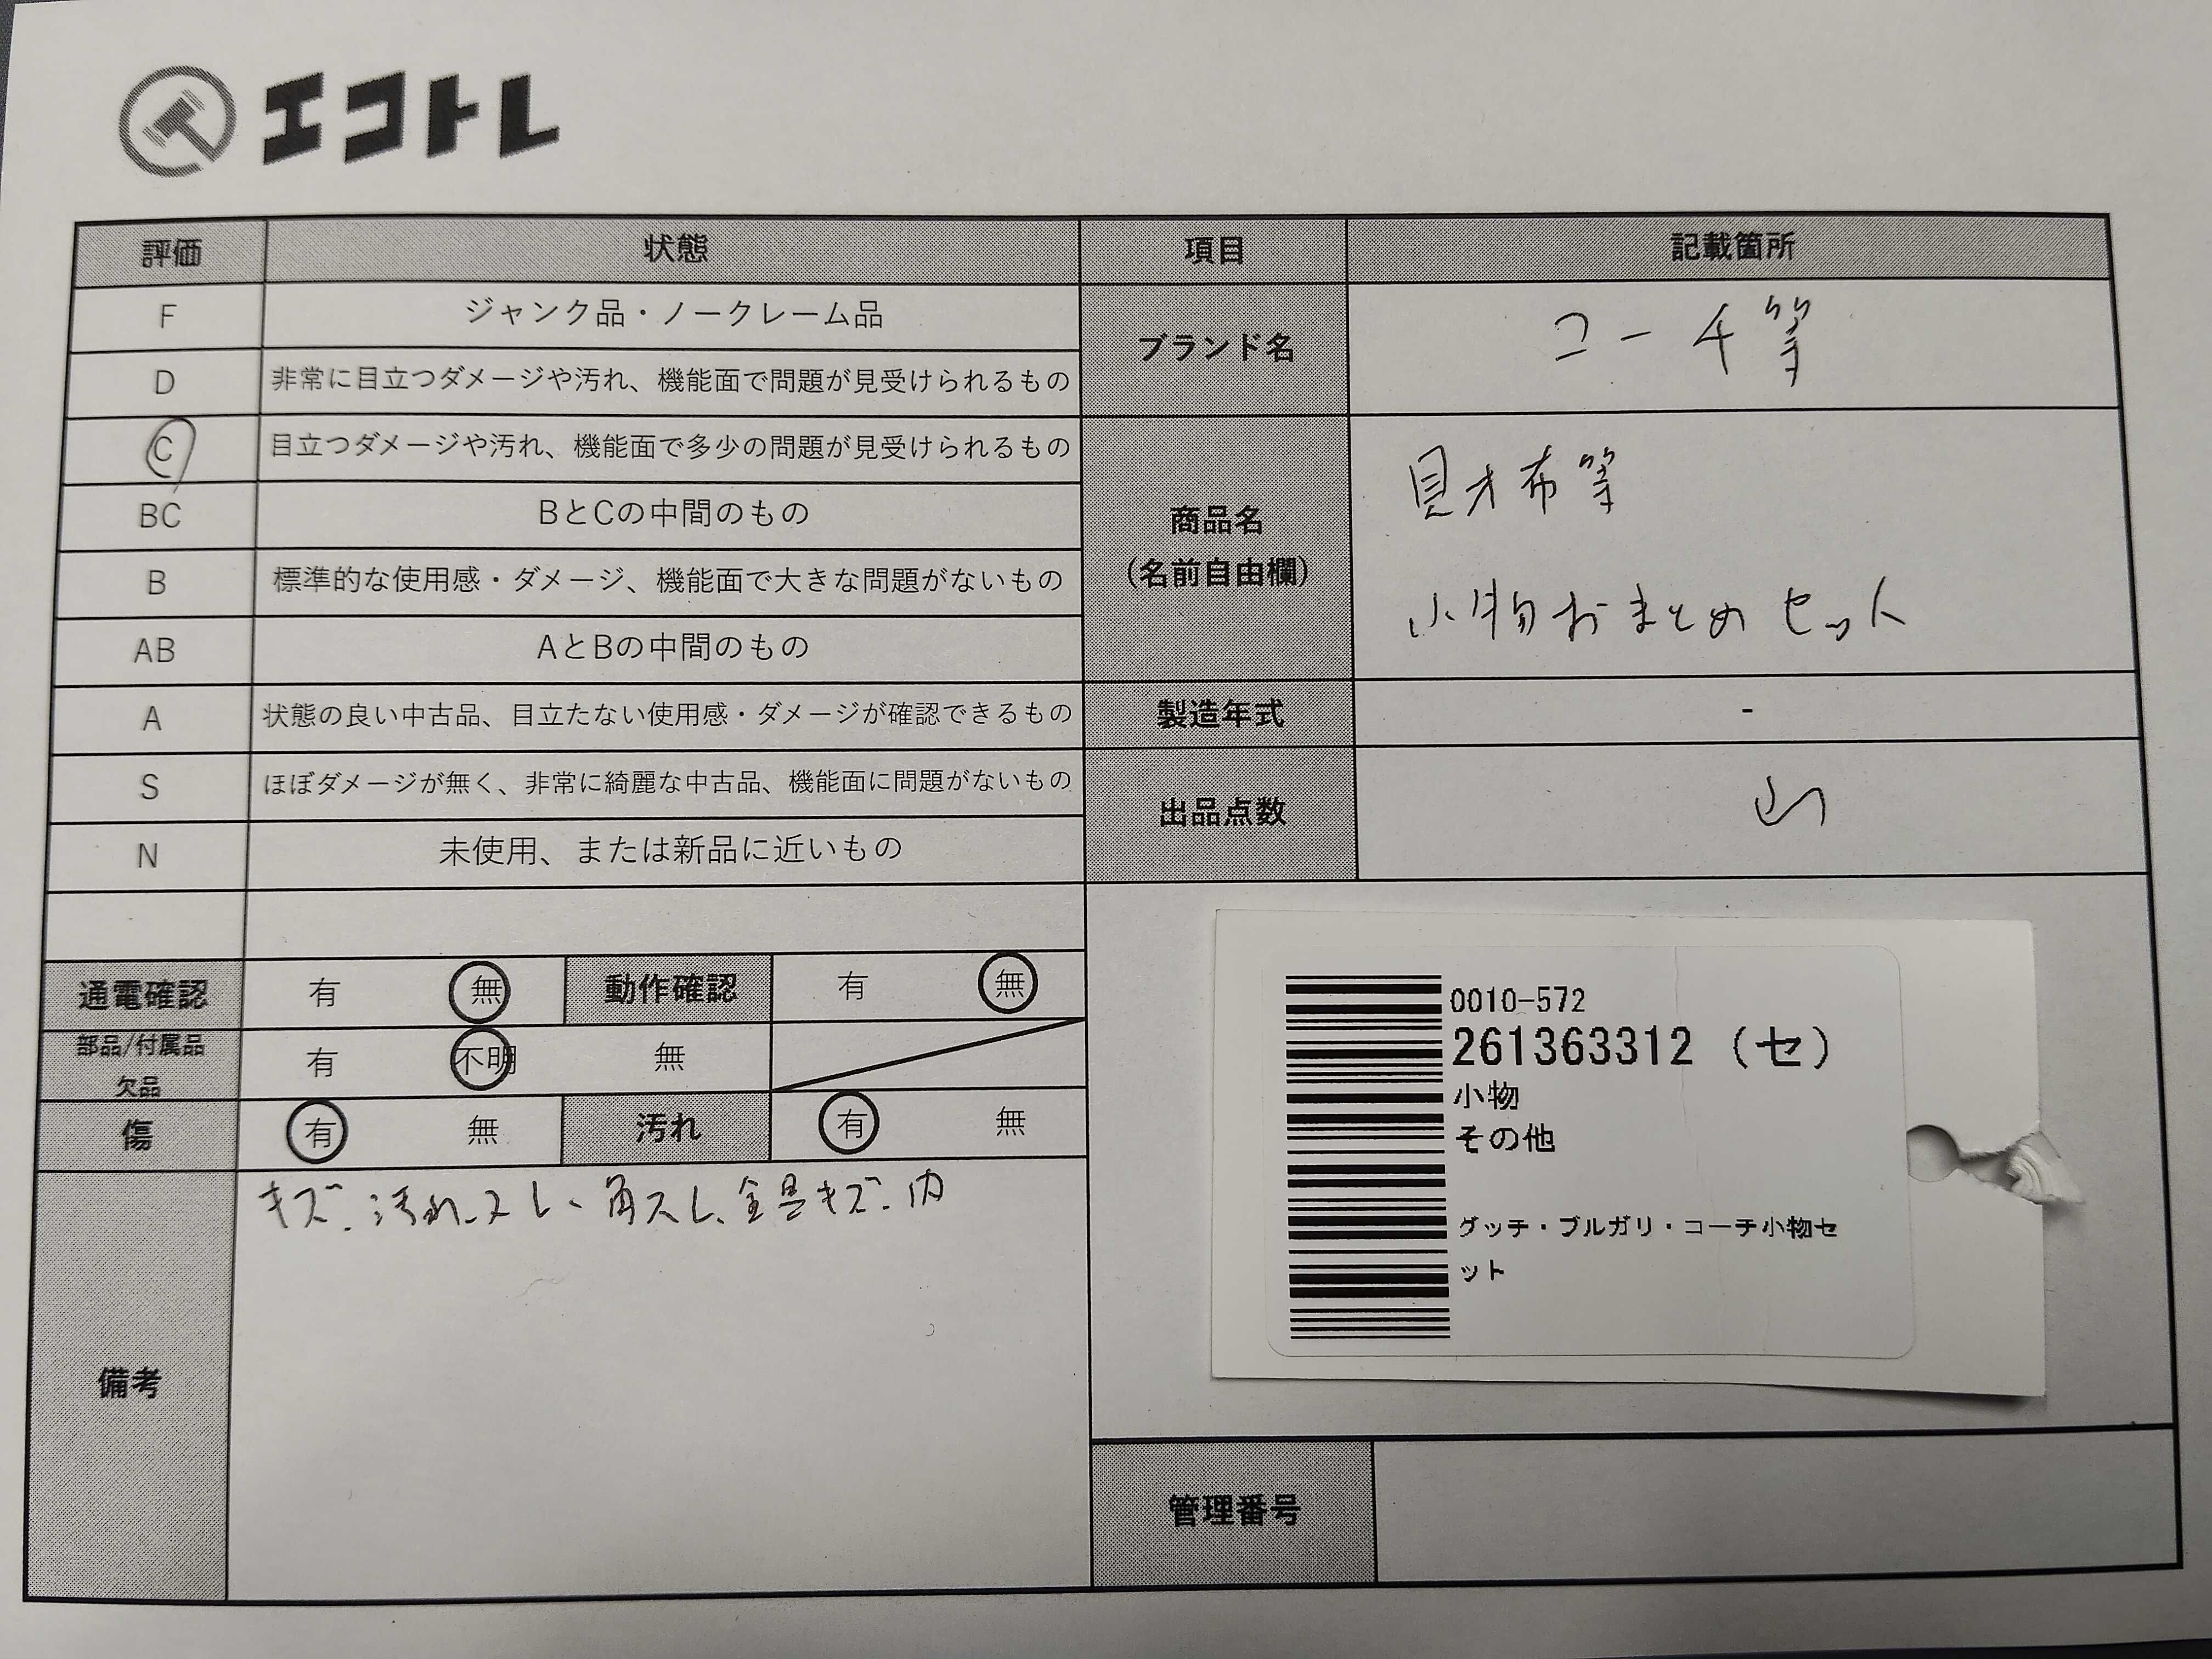 エコトレ
評価 状態 項目 記載箇所
F ジャンク品・ノークレーム品
D 非常に目立つダメージや汚れ、機能面で問題が見受けられるもの
ブランド名 コーチ等
C 目立つダメージや汚れ、機能面で多少の問題が見受けられるもの
BC BとCの中間のもの
B 標準的な使用感・ダメージ、機能面で大きな問題がないもの
AB AとBの中間のもの
商品名
(名前自由欄)
財布等
小物おまとめセット
A 状態の良い中古品、目立たない使用感・ダメージが確認できるもの
製造年式 -
S ほぼダメージが無く、非常に綺麗な中古品、機能面に問題がないもの
N 未使用、または新品に近いもの
出品点数 山
通電確認 有 無 動作確認 有 無
部品/付属品
欠品
有 不明 無
傷 有 無 汚れ 有 無
備考
キズ、汚れ、スレ、角スレ、金具キズ、内
0010-572
261363312(セ)
小物
その他
グッチ・ブルガリ・コーチ小物セ
ット
管理番号